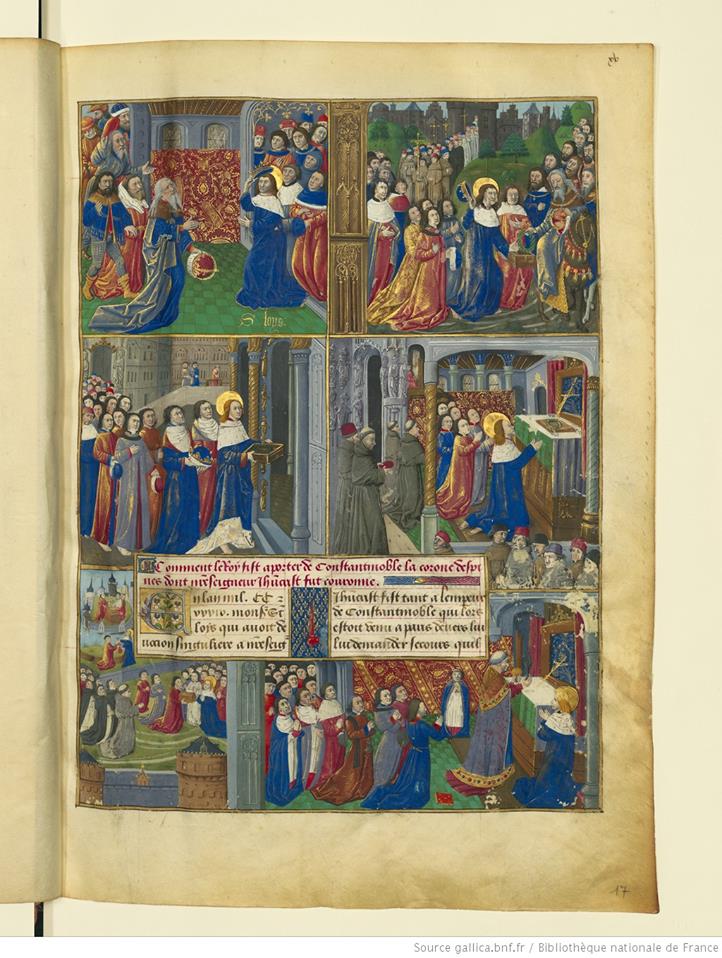 xv
S loys
Comment le Roy fist aporter de Constantinoble la corone despi
nes dont nreseigneur Jhucrist fut couronne
En lan mil. CC
xxxix. monsr St
loys qui auoit de
uocion singuliere a nreseig
Jhucrist fist tant a lempeur
de Constantinoble qui lors
estoit venu a paris deuers lui
lui demander secours quil
17
Source gallica.bnf.fr / Bibliothèque nationale de France